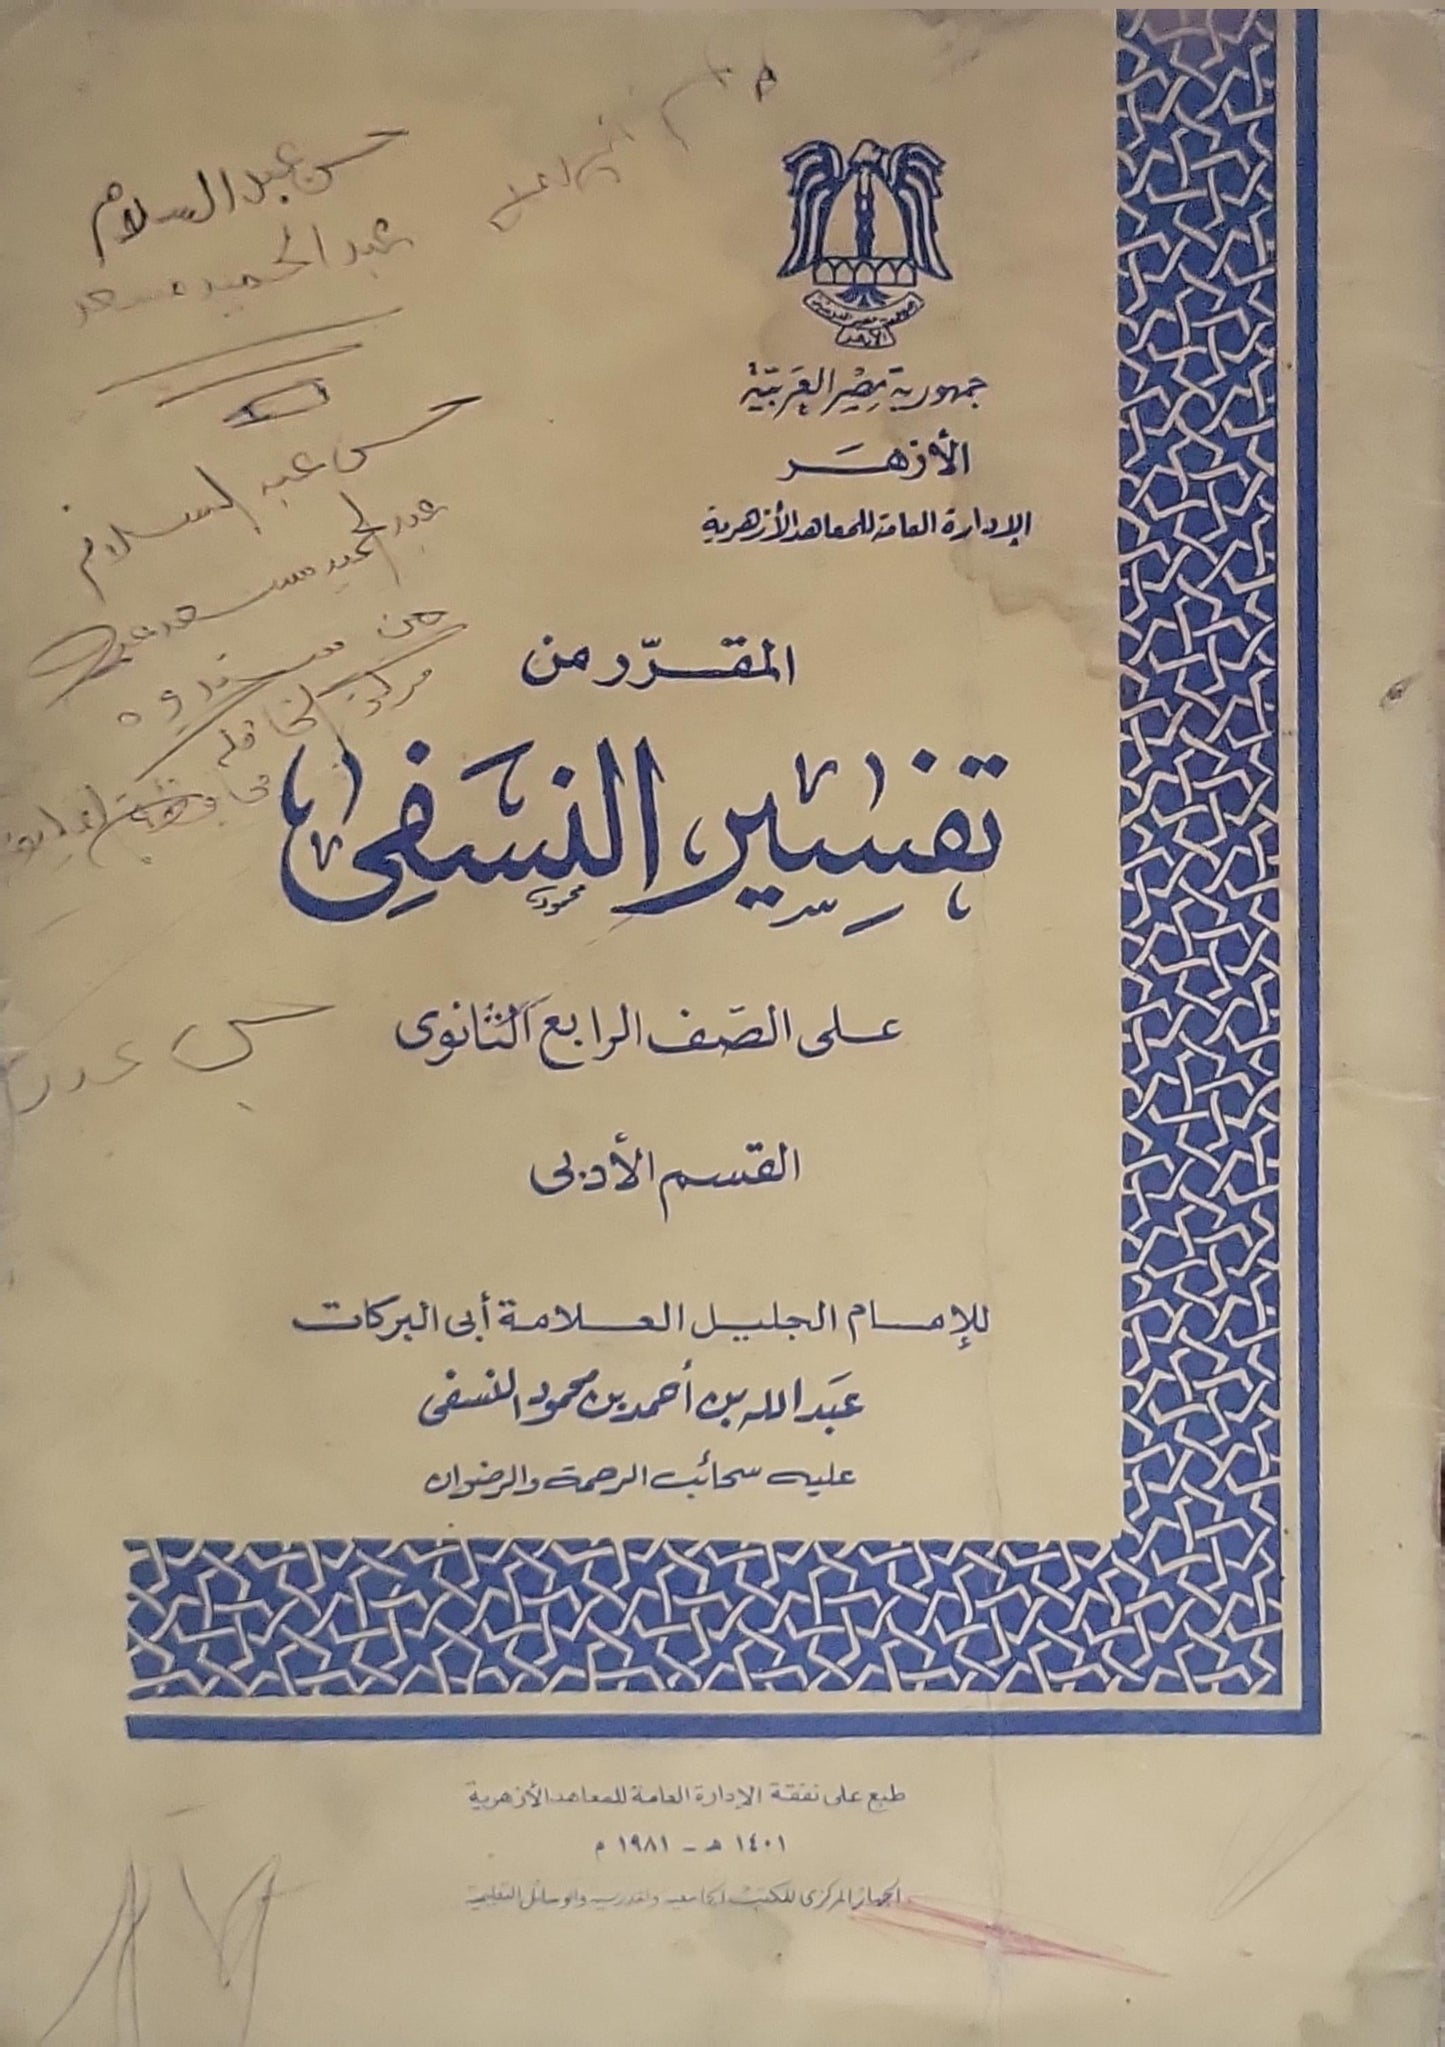 حسن عبد السلام
عبد الحميد سعد
حسن عبد السلام
عبد الحميد سعد
من سندوه
مركز الخانكه
حسن عبد
جمهورية مصر العربية
الأزهر
الإدارة العامة للمعاهد الأزهرية
المقرّر من
تفسير النسفى
محمود
على الصف الرابع الثانوى
القسم الأدبى
للإمام الجليل العلامة أبى البركات
عبد الله بن أحمد بن محمود النسفى
عليه سحائب الرحمة والرضوان
طبع على نفقة الإدارة العامة للمعاهد الأزهرية
١٤٠١ هـ - ١٩٨١ م
الجهاز المركزى للكتب الجامعية والمدرسية والوسائل التعليمية